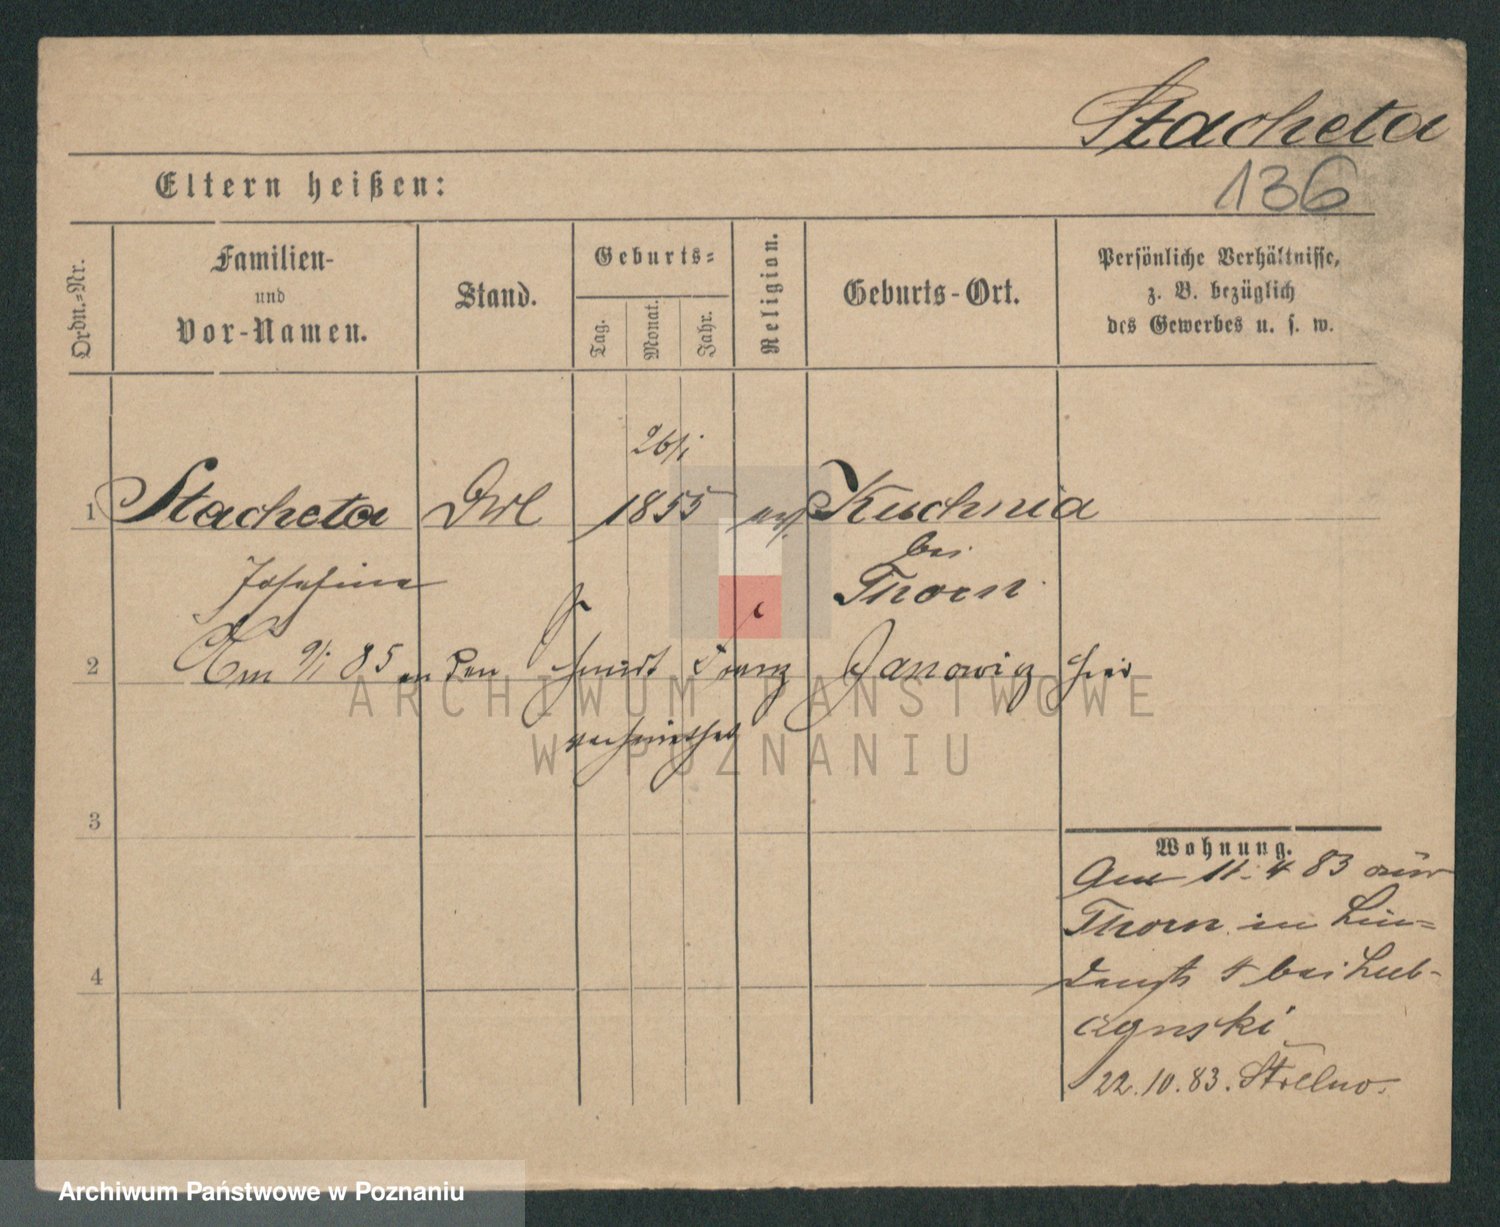 Stacheta
136
Eltern heißen:
Ordn.=Nr.
Familien-
und
Vor-Namen.
Stand.
Geburts=
Tag.
Monat.
Jahr.
Religion.
Geburts-Ort.
Persönliche Verhältnisse,
z. B. bezüglich
des Gewerbes u. s. w.
26/1
1 Stacheta 1855 Kuchnia
bei
Josefine Thorn
2 Am 9/1 85 an den Franz Janowicz hier
verheirathet
3
Wohnung.
11. 4 83 aus
Thorn in Lin=
denstr 4 bei Lub-
czynski
4
22.10.83. Strelno.
ARCHIWUM PAŃSTWOWE
W POZNANIU
Archiwum Państwowe w Poznaniu